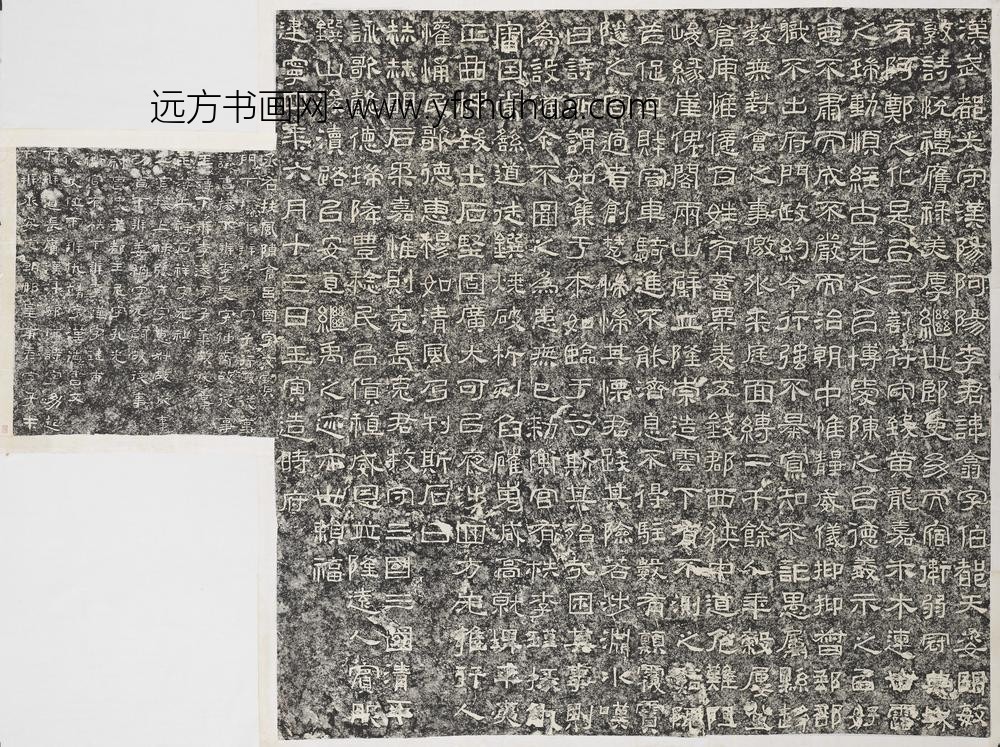 漢武都太守漢陽阿陽李君諱翕字伯都天姿明敏
敦詩悅禮膺祿美厚繼世郎吏幼而宿衛弱冠典城
有阿鄭之化是以三剖符守致黃龍嘉禾木連甘露
之瑞動順經古先之以博愛陳之以德義示之以好
惡不肅而成不嚴而治朝中惟靜威儀抑抑督郵部
職不出府門政約令行強不暴寡知不詐愚屬縣趍
教無對會之事儌外來庭面縛二千餘人年穀屢登
倉庾惟億百姓有蓄粟麥五錢郡西狹中道危難阻
峻緣崖俾閣兩山壁立隆崇造雲下有不測之谿阸
芐促迫財容車騎進不能濟息不得駐數有顛覆霣
隧之害過者創楚惴惴其慄君踐其險若涉淵冰嘆
曰詩所謂如集于木如臨于谷斯其殆哉困其事則
為設備今不圖之為患無已勑衡官有秩李瑾掾仇
審因常繇道徒鐉燒破析刻臽磪嵬減高就埤平夷
正曲柙致土石堅固廣大可以夜涉四方无雍行人
懽悀民歌德惠穆如清風乃刊斯石曰
赫赫明后柔嘉惟則克長克君牧守三國三國清平
詠歌懿德瑞降豐稔民以貨稙威恩並隆遠人賓服
鐉山浚瀆路以安直繼禹之迹亦世賴福
建寧四年六月十三日壬寅造時府
丞右扶風陳倉呂國字文寶
远方书画网-www.yfshuhua.com